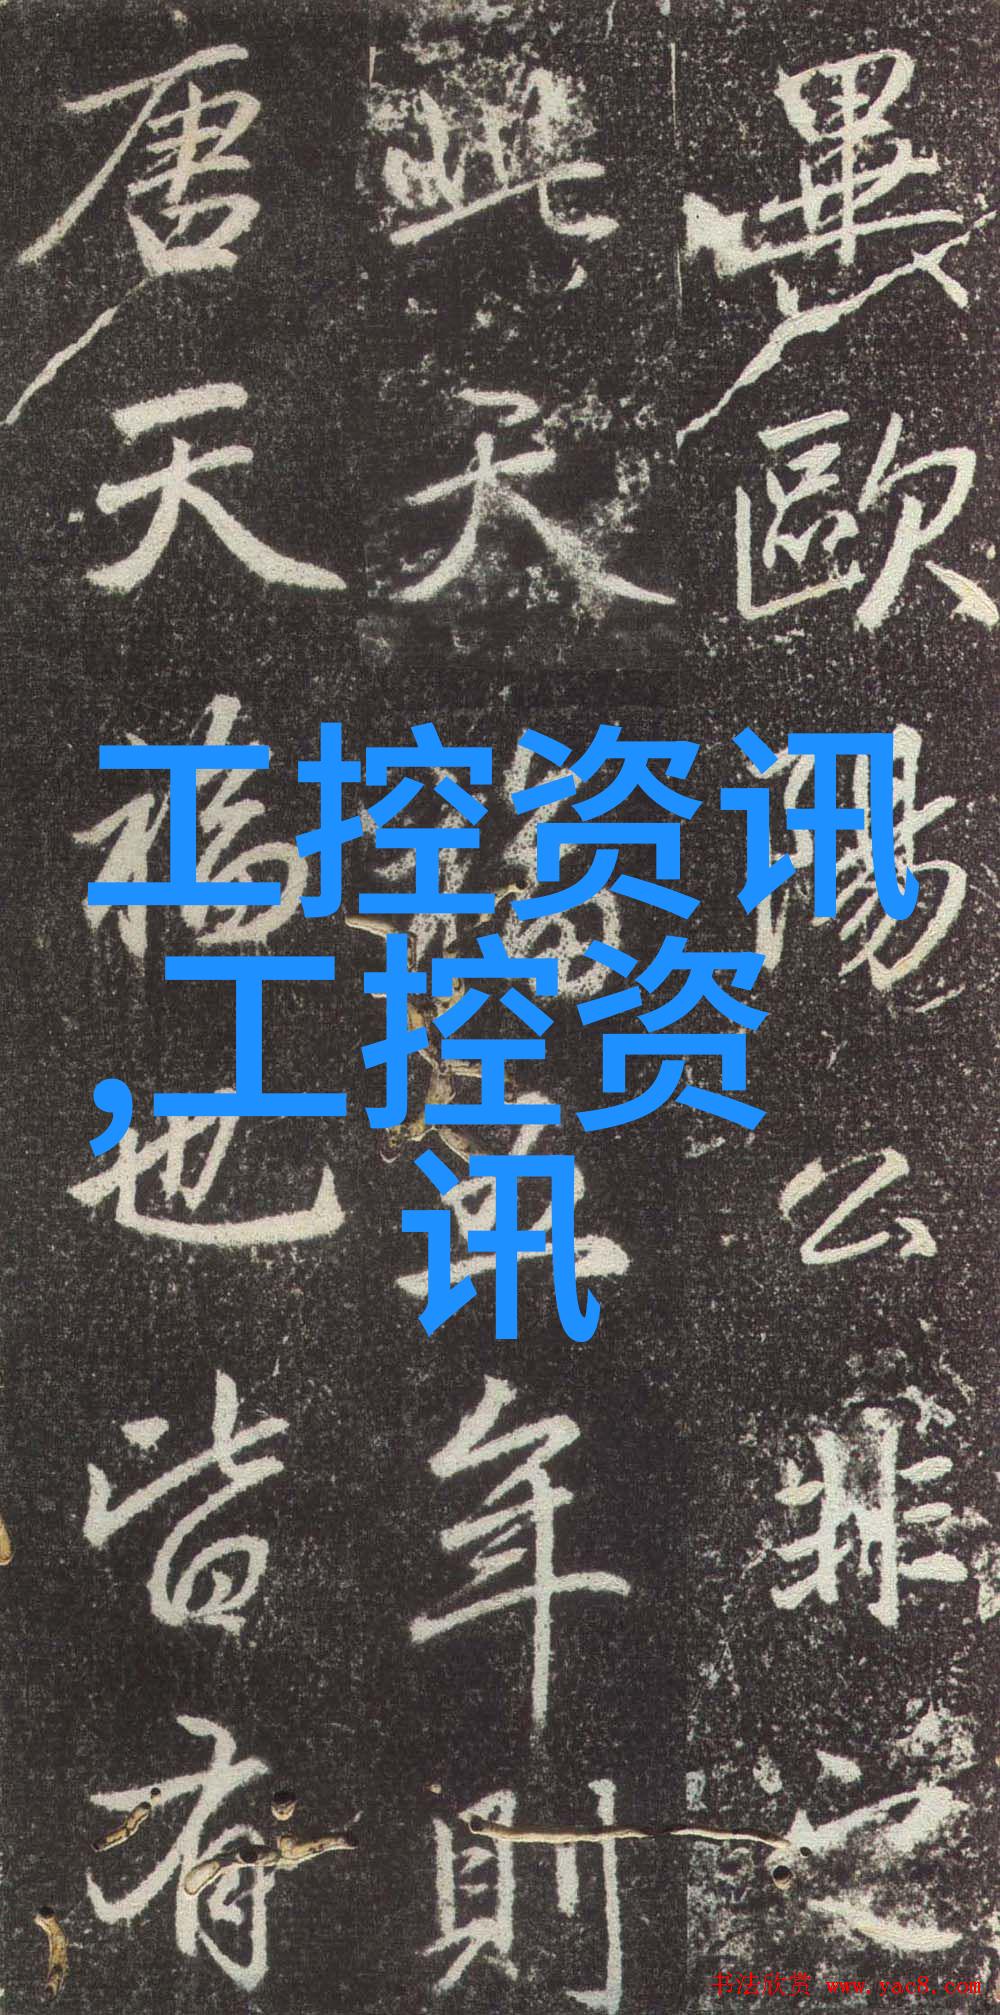 畢歐陽公非之
此天福五年則
唐天福也皆有
工控资讯
,工控资
讯
书法欣赏 www.yac8.com